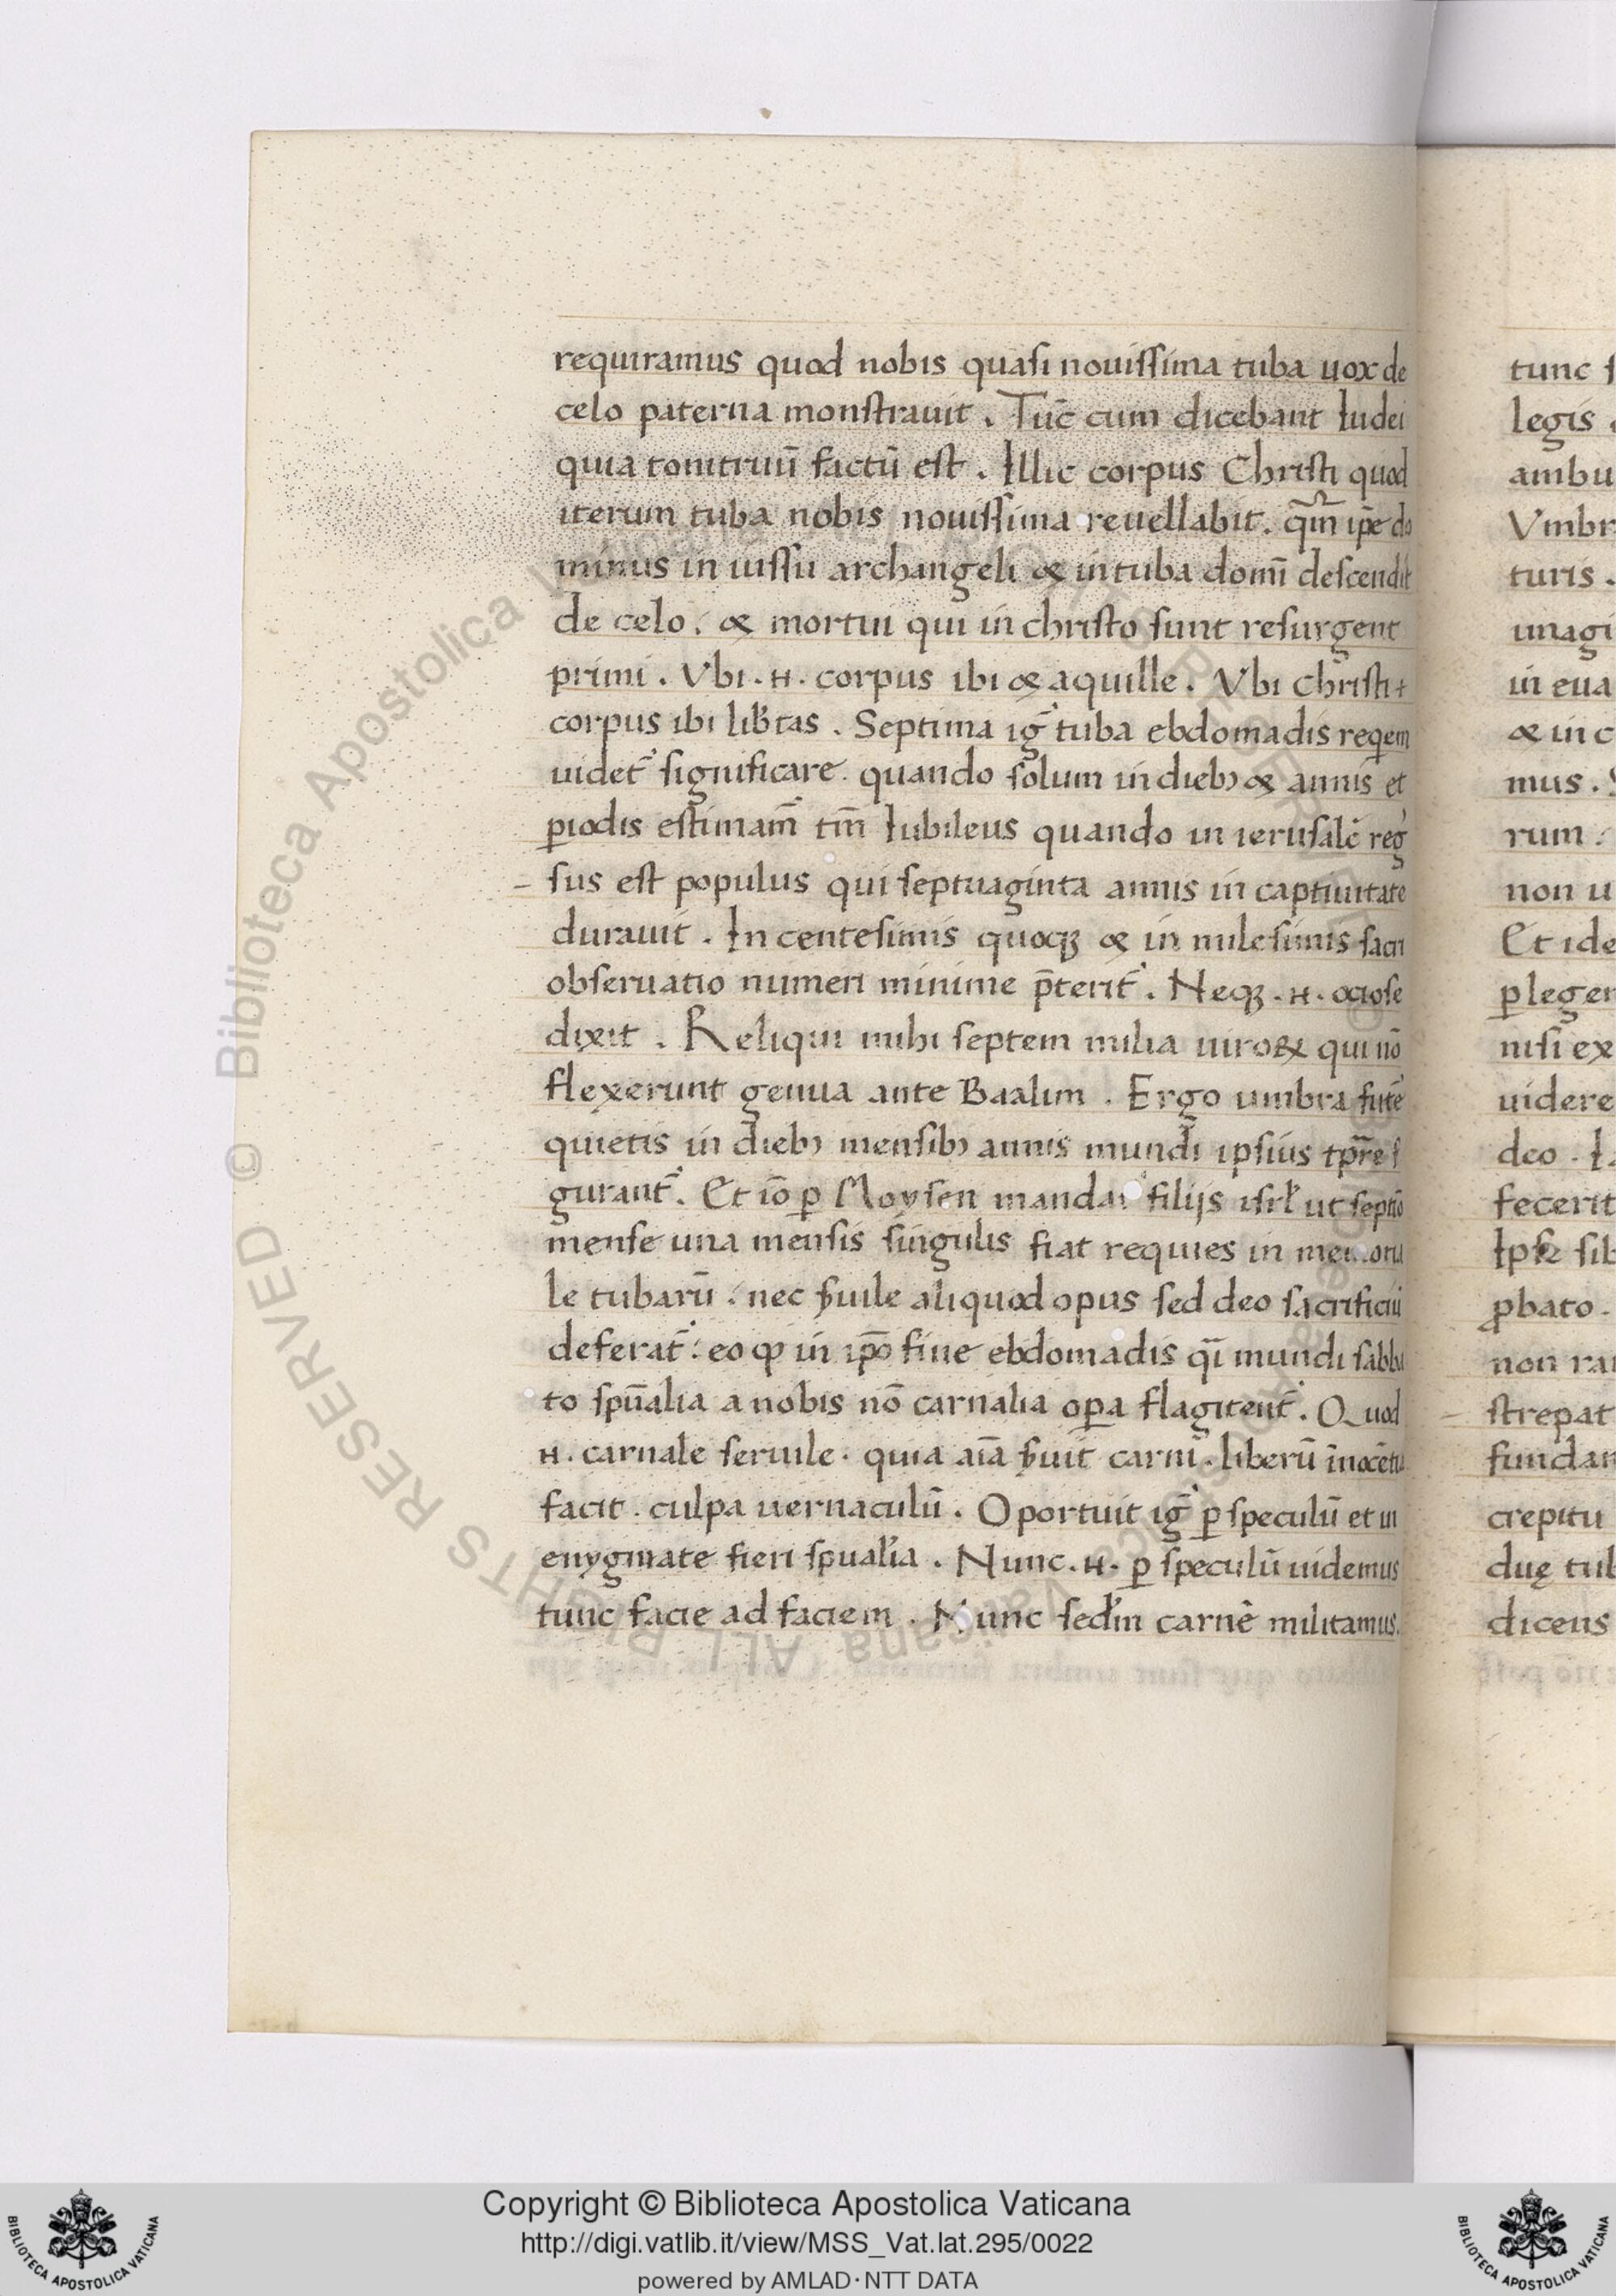 requiramus quod nobis quasi nouissima tuba uox de
celo paterna monstrauit . Tuc̄ cum dicebant Iudei
quia tonitruū factū est . Illic corpus Christi quod
iterum tuba nobis nouissima reuellabit. qm̄ ip̄e do
minus in iussu archangeli & in tuba domī descendit
de celo . & mortui qui in christo sunt resurgent
primi . Vbi . н . corpus ibi & aquille . Vbi christi
corpus ibi lib̄tas . Septima iḡ tuba ebdomadis reqem
uidet̄ significare . quando solum in dieb; & annis et
ꝑiodis estimam̄ tm̄ Iubileus quando in ierusalē reḡ
sus est populus qui septuaginta annis in captiuitate
durauit . In centesimis quoqꝫ & in milesimis sacri
obseruatio numeri minime p̄terit̄ . Neqꝫ . н . ociose
dixit . Reliqui mihi septem milia uiroꝝ qui nō
flexerunt genua ante Baalim . Ergo umbra futē
quietis in dieb; mensib; annis mundi ipsius
gurant̄ . Et iō ꝑ Moysen mandat filijs isrl̄ ut septīo
mense una mensis singulis fiat requies in memoria
le tubarū . nec s̄uile aliquod opus sed deo sacrificiū
deferat̄ : eo ꝙ in ip̄o fine ebdomadis qī mundi sabba
to sp̄ualia a nobis nō carnalia oꝑa flagitent̄ . Quod
н . carnale seruile . quia aīa s̄uit carnī . liberū
facit . culpa uernaculū . Oportuit iḡ ꝑ speculū et in
enygmate fieri sp̄ualia . Nunc . н . ꝑ speculū uidemus
tunc facie ad faciem . Nunc sed̄m carnē militamus.
tunc
legis
ambu
Vmbr
turis .
imagi
in eua
& in c
mus .
rum .
non u
Et ide
ꝑ leger
nisi ex
uidere
deo .
fecerit
Ipse sib
ꝓbato .
non rai
strepat
fundan
crepitu
duę tub
dicens
© Biblioteca Apostolica Vaticana ALL RIGHTS RESERVED
Copyright © Biblioteca Apostolica Vaticana
http://digi.vatlib.it/view/MSS_Vat.lat.295/0022
powered by AMLAD·NTT DATA
BIBLIOTECA APOSTOLICA VATICANA
BIBLIOTECA APOSTOLICA VATICANA